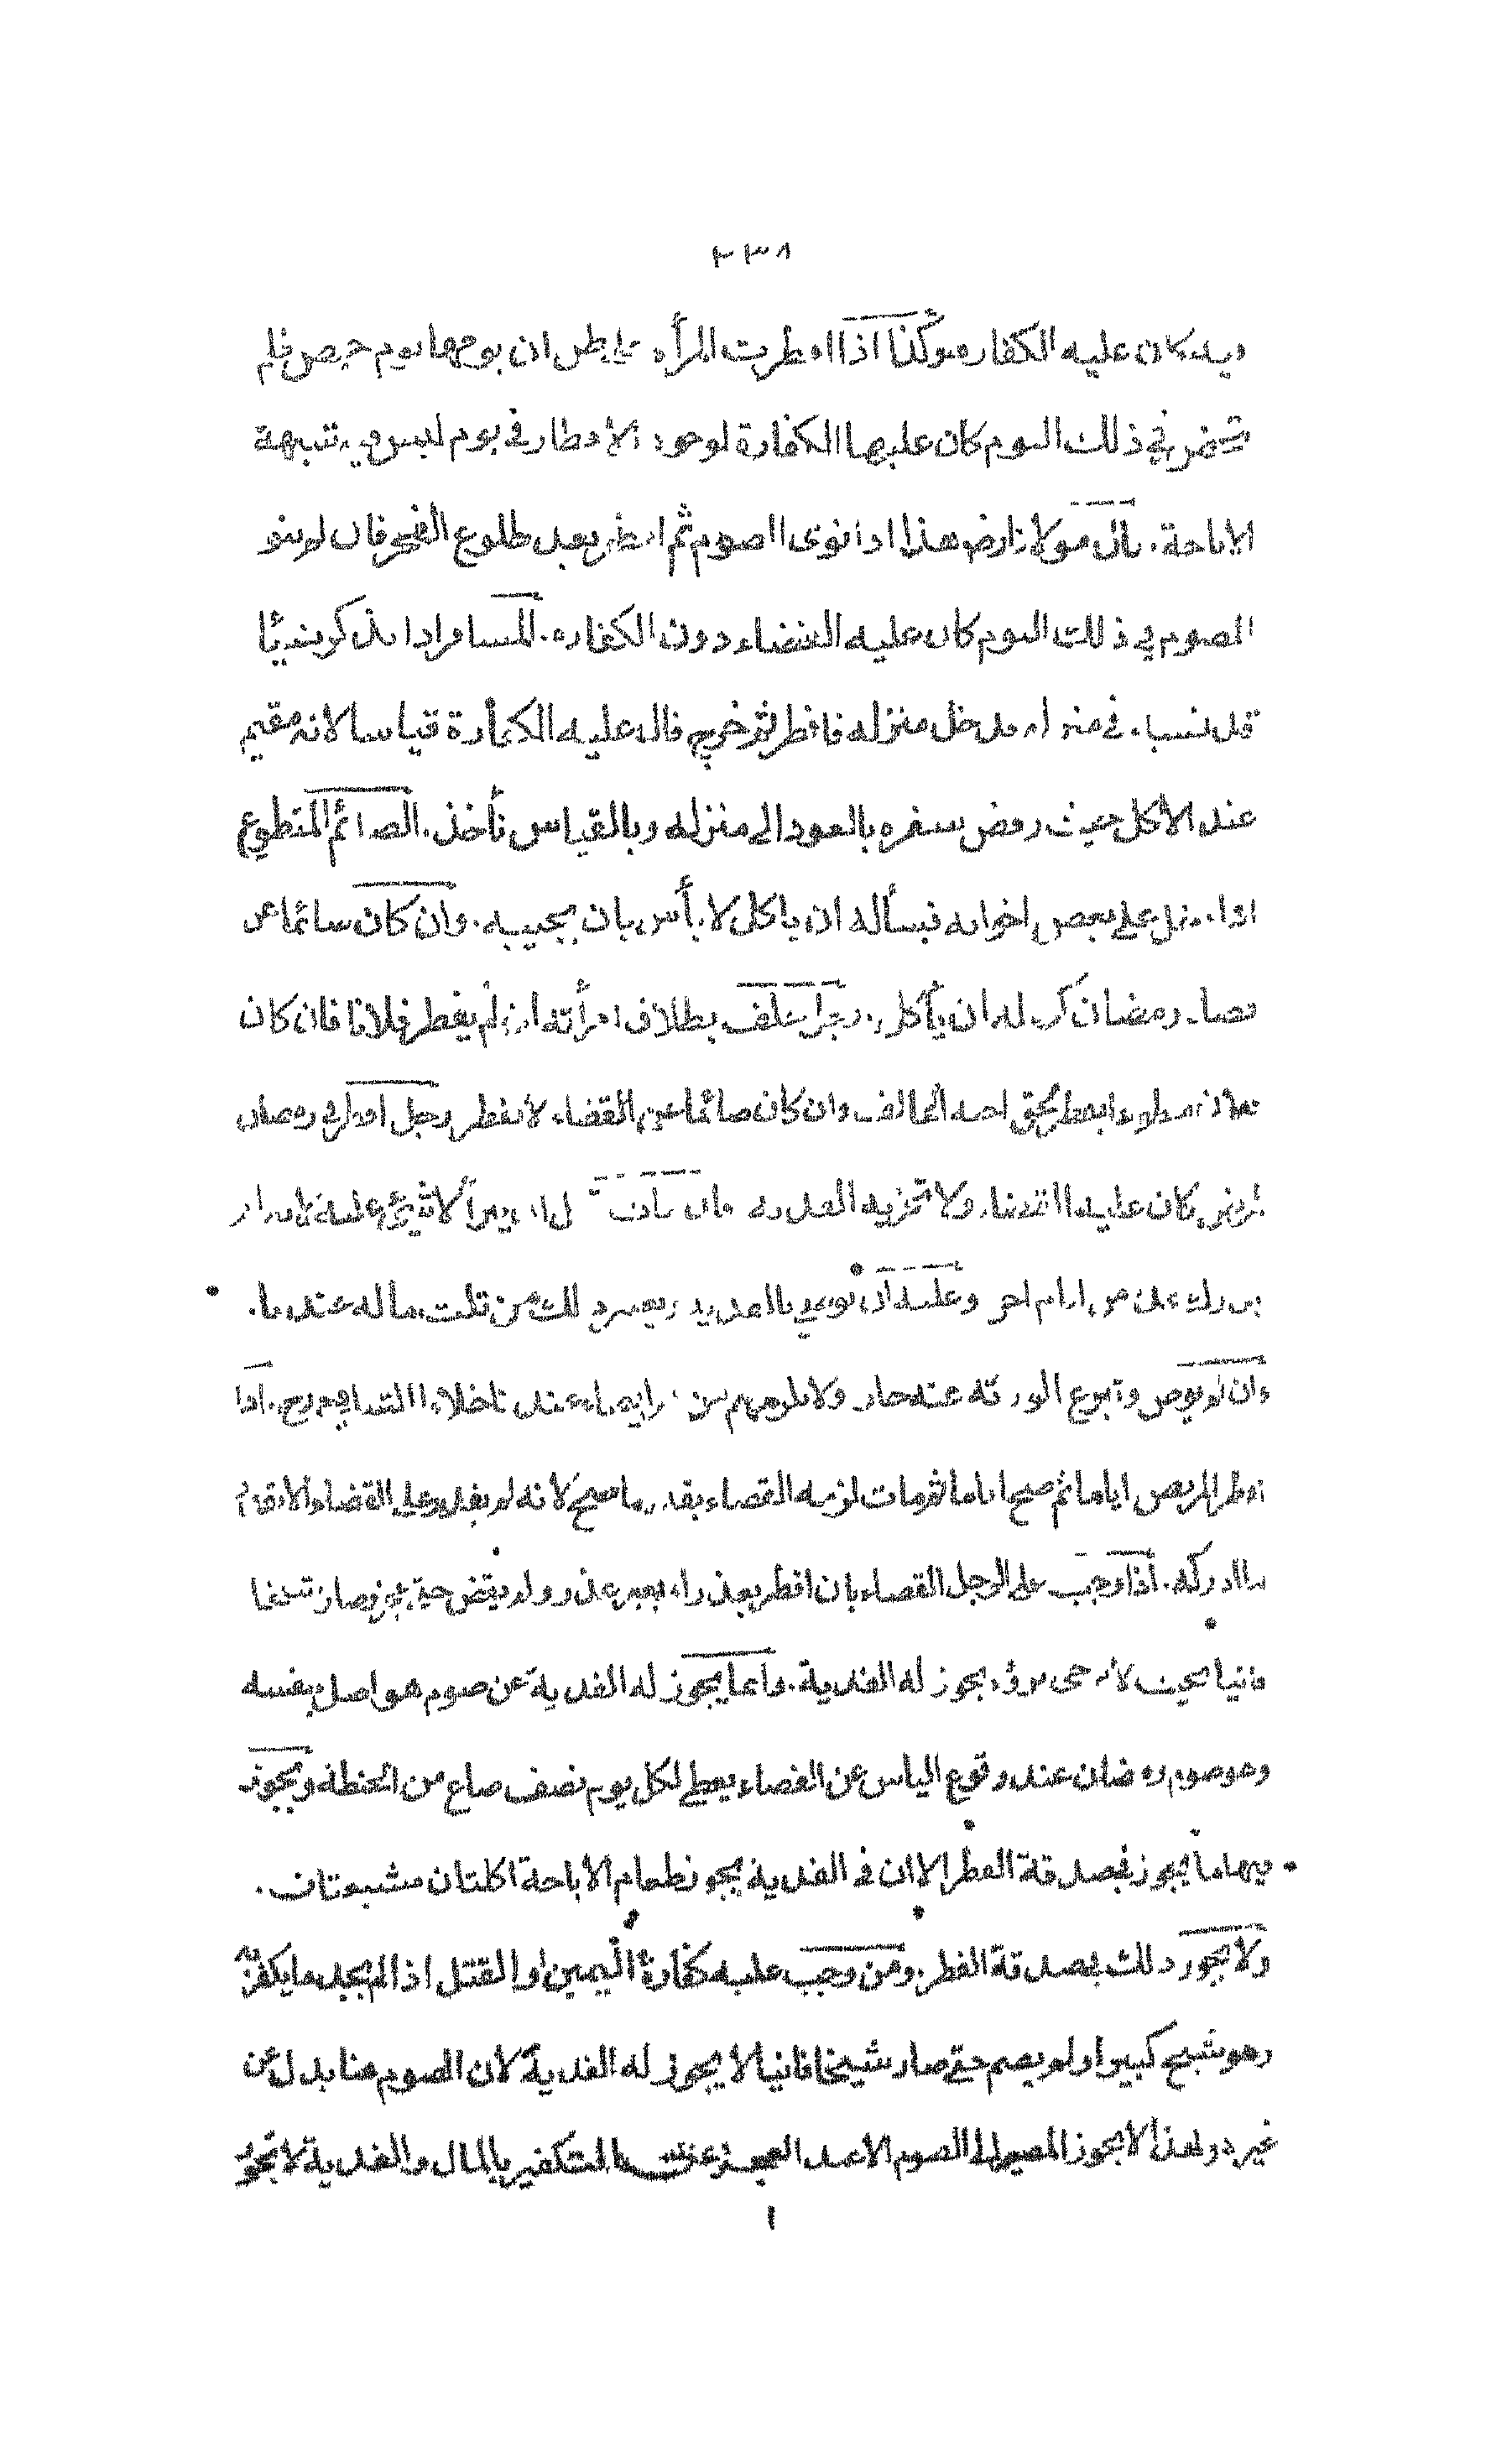 ٢٣٨
كان عليه الكفارة وكذا اذا افطرت المرأة على ظن ان يومها يوم حيض فلم
تحض في ذلك اليوم كان عليها الكفارة لوجود الافطار في يوم ليس فيه شبهة
الاباحة. قال مولانا رض هذا اذا نوى الصوم ثم افطر بعد طلوع الفجر فان لم ينو
الصوم في ذلك اليوم كان عليه القضاء دون الكفارة. المسافر اذا تذكر شيئا
قد نسيه في منزله فدخل منزله فافطر ثم خرج قال عليه الكفارة قياسا لانه مقيم
عند الاكل حيث رفض سفره بالعود الى منزله وبالقياس نأخذ. الصائم المتطوع
اذا دخل على بعض اخوانه فيسأله ان ياكل لا بأس بان يجيبه. وان كان صائما عن
قضاء رمضان كره له ان يأكل. رجل حلف بطلاق امرأته ان لم يفطر فلانا فان كان
فلان متطوعا يفطر لحق اخيه الحالف وان كان صائما عن القضاء لا يفطر رجل افطر في رمضان
كان عليه القضاء ولا تجزيه الفدية فان مات قبل ان يبرأ لا شيء عليه
عدة من ايام اخر وعليه ان يوصي بالفدية ويعتبر ذلك من ثلث ماله عندنا.
وان لم يوص وتبرع الورثة عنه جاز ولا يلزمهم من غير ايصاء عندنا خلافا للشافعي رح. اذا
افطر المريض اياما ثم صح اياما ثم مات لزمه القضاء بقدر ما صح لانه لم يقدر على القضاء الا قدر
ما ادركه. اذا وجب على الرجل القضاء بان افطر بعذر او بغير عذر ولم يقض حتى عجز وصار شيخا
فانيا بحيث لا يرجى برؤه يجوز له الفدية. وانما يجوز له الفدية عن صوم هو اصل بنفسه
وهو صوم رمضان عند وقوع الياس عن القضاء يعطي لكل يوم نصف صاع من الحنطة ويجوز
فيها ما يجوز في صدقة الفطر الا ان في الفدية يجوز طعام الاباحة اكلتان مشبعتان.
ولا يجوز ذلك في صدقة الفطر. ومن وجب عليه كفارة اليمين او القتل اذا لم يجد ما يكفر به
وهو شيخ كبير او لم يصم حتى صار شيخا فانيا لا يجوز له الفدية لان الصوم هنا بدل عن
غيره ولهذا لا يجوز المصير الى الصوم الا عند العجز عن التكفير بالمال والفدية لا تجوز